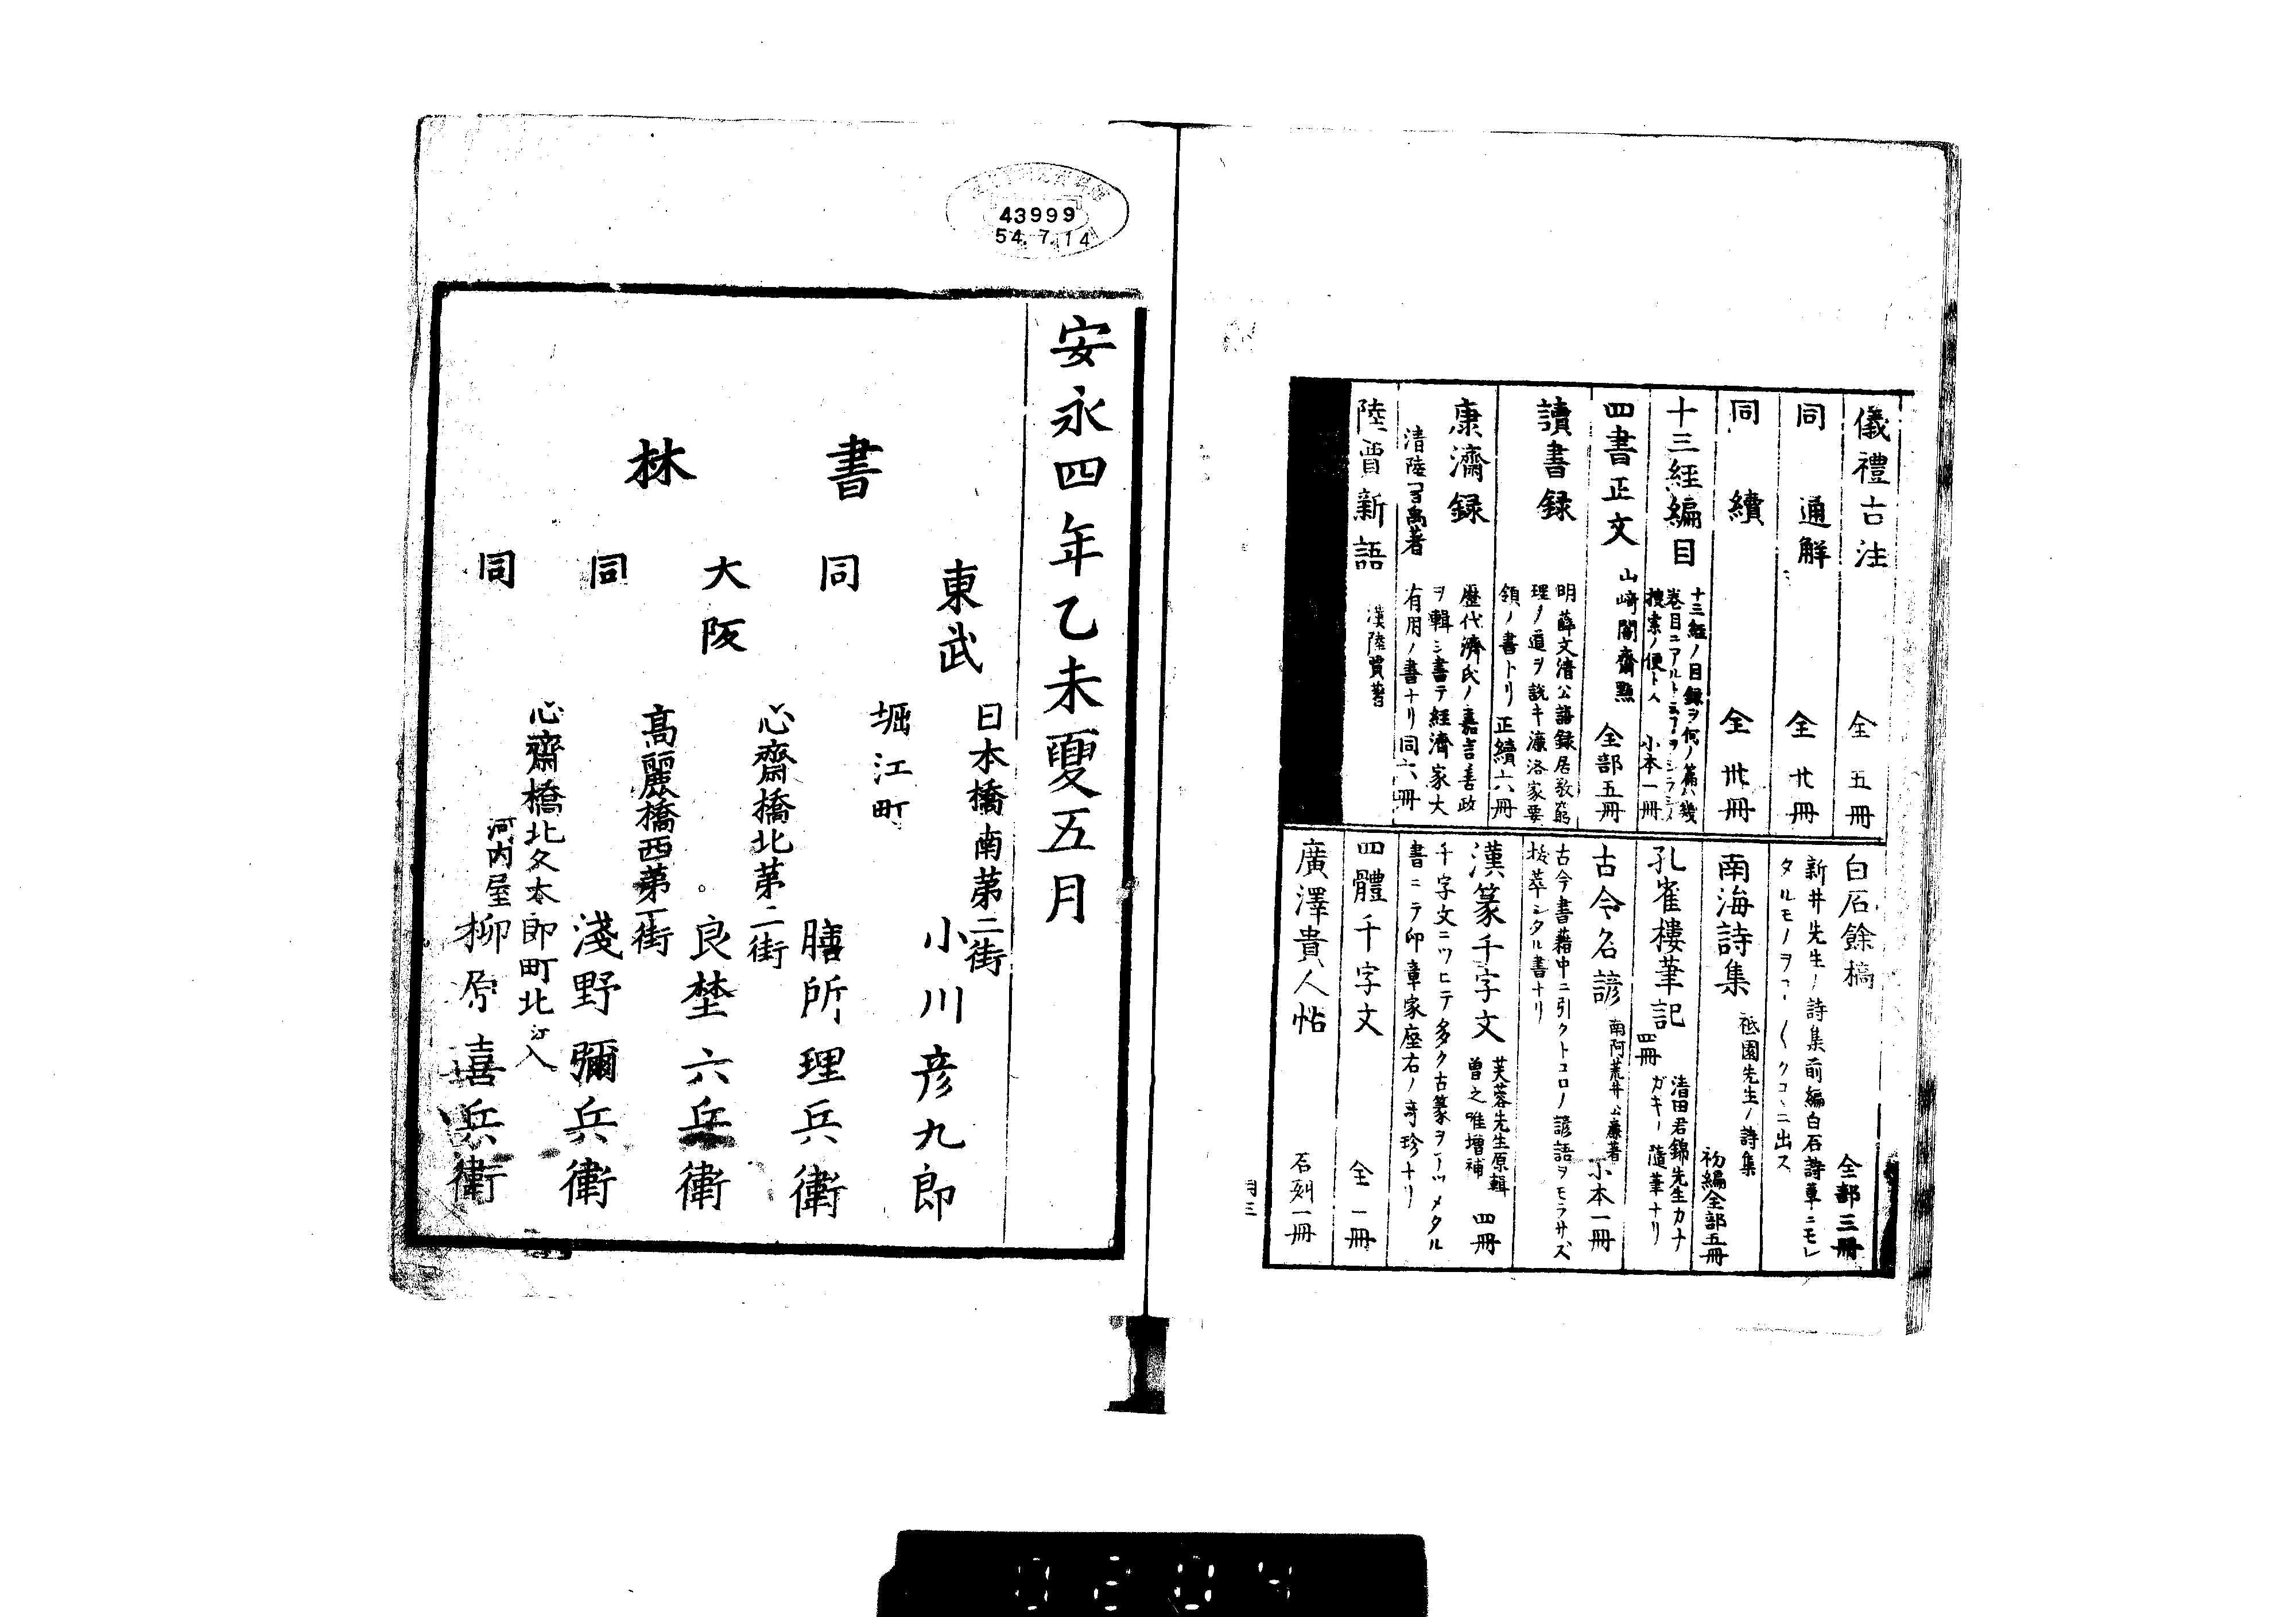 儀禮古注 全五冊
同 通解 全廿冊
同 續 全卅冊
十三経編目
十三経ノ目録ヲ何ノ篇ハ幾
捜索ノ便トス 小本一冊
四書正文 山﨑闇齋點 全部五冊
讀書録
明薛文清公語録居敬窮
理ノ道ヲ説キ濂洛家要
領ノ書トリ 正續六冊
康濟録
歴代濟民ノ嘉言善政
ヲ輯シ書テ経濟家大
有用ノ書ナリ同六冊
陸賈新語 漢陸賈著
白石餘稿 全部三冊
新井先生ノ詩集前編白石詩草ニモレ
南海詩集 祗園先生ノ詩集 初編全部五冊
孔雀樓筆記 四冊
清田君錦先生カナ
ガキノ隨筆ナリ
古今名諺 南阿荒井公廉著 小本一冊
古今書藉中ニ引クトコロノ諺語ヲモラサズ
抜萃シタル書ナリ
漢篆千字文
芙蓉先生原輯
曽之唯増補 四冊
千字文ニツヒテ多ク古篆ヲアツメタル
書ニテ印章家座右ノ奇珍ナリ
四體千字文 全一冊
廣澤貴人帖 石刻一冊
43999
54.7.14
安永四年乙未夏五月
書林
東武 日本橋南苐二街 小川彦九郎
同 堀江町 膳所理兵衛
大阪 心齋橋北苐二街 良埜六兵衛
同 高麗橋西苐一街 淺野彌兵衛
同 心齋橋北久太郎町北ヘ入
河内屋 柳原喜兵衛
0204